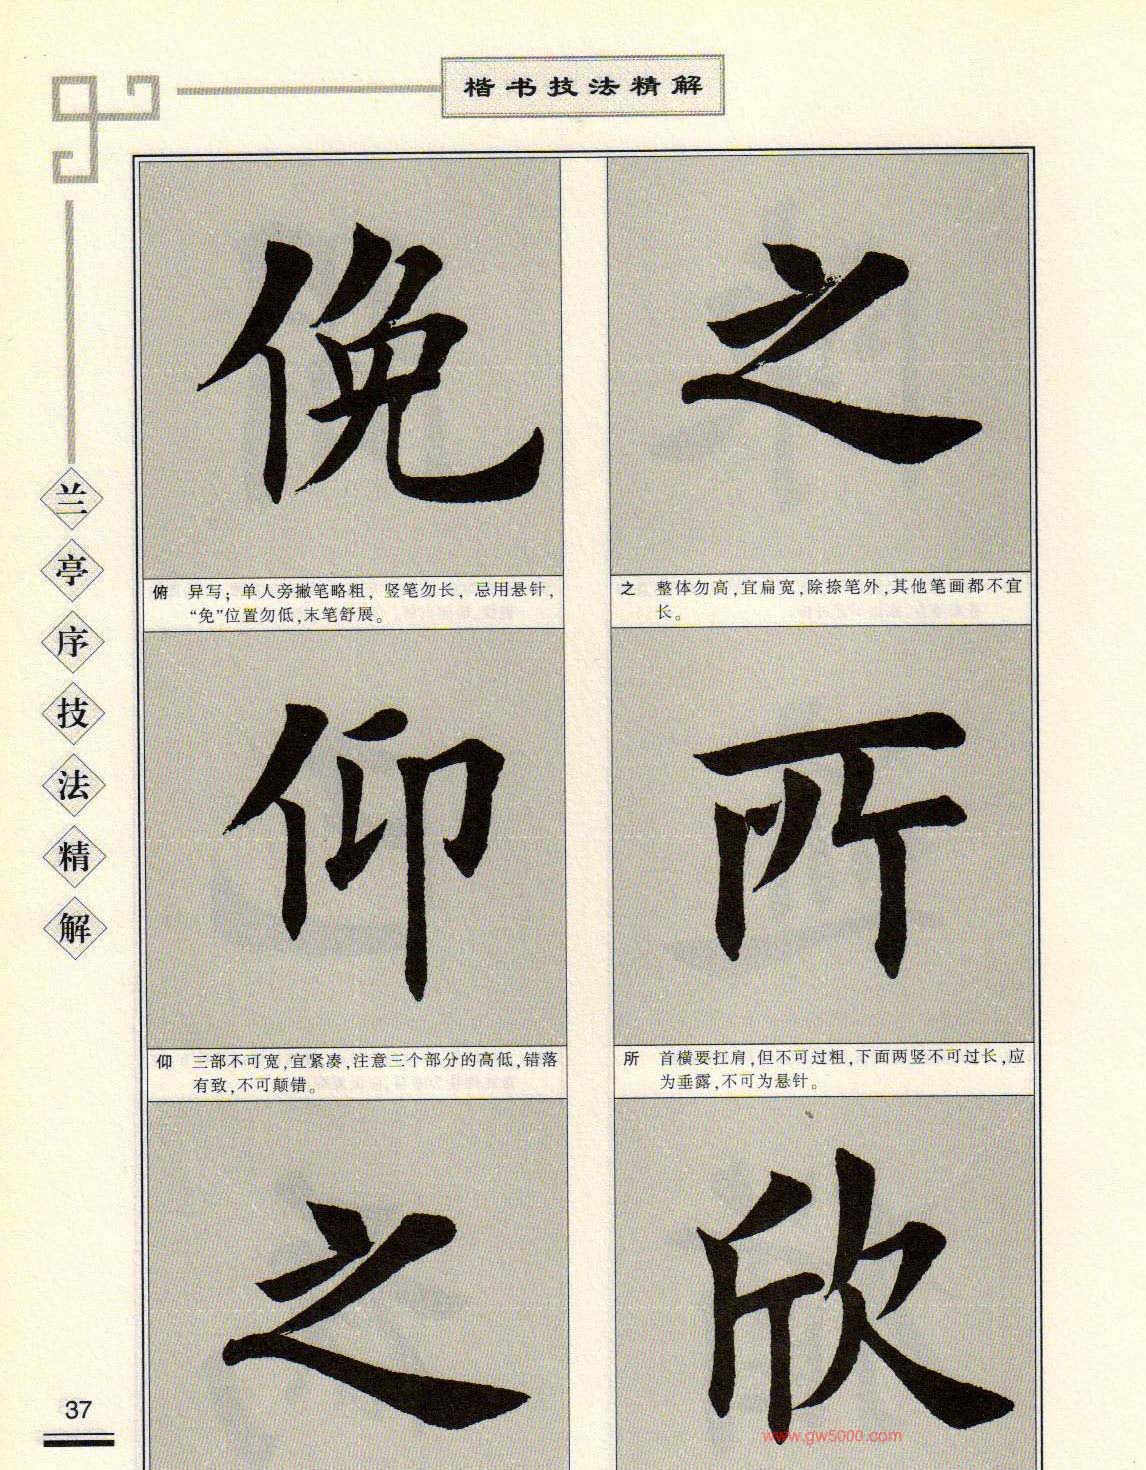 楷书技法精解
兰亭序技法精解
之
之 整体勿高,宜扁宽,除捺笔外,其他笔画都不宜
长。
所
所 首横要扛肩,但不可过粗,下面两竖不可过长,应
为垂露,不可为悬针。
欣
俛
俯 异写；单人旁撇笔略粗，竖笔勿长，忌用悬针，
“免”位置勿低,末笔舒展。
仰
仰 三部不可宽,宜紧凑,注意三个部分的高低,错落
有致,不可颠错。
之
37
www.gw5000.com